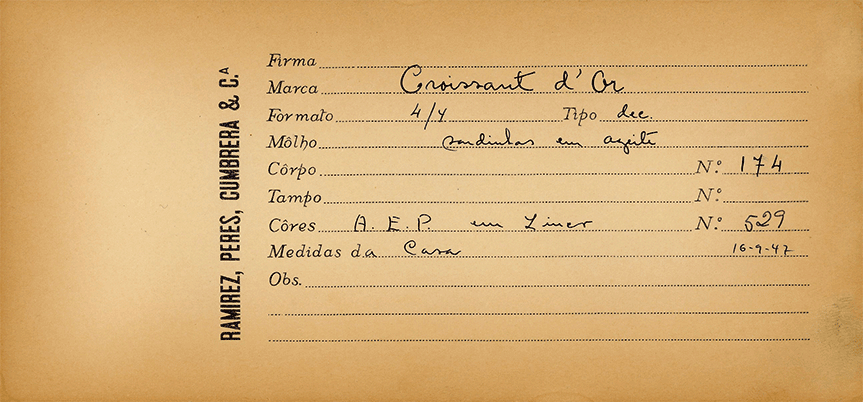 RAMIREZ, PERES, CUMBRERA & C.ª
Firma
Marca Croissant d'Or
Formato 4/4 Tipo dec.
Môlho sardinhas em azeite
Côrpo N.º 174
Tampo N.º
Côres A. E. P. em Liner N.º 529
Medidas da Casa 16-9-47
Obs.